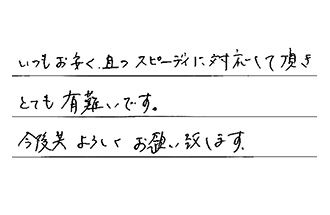 いつもお安く、且つスピーディに対応して頂き
とても有難いです。
今後共よろしくお願い致します。